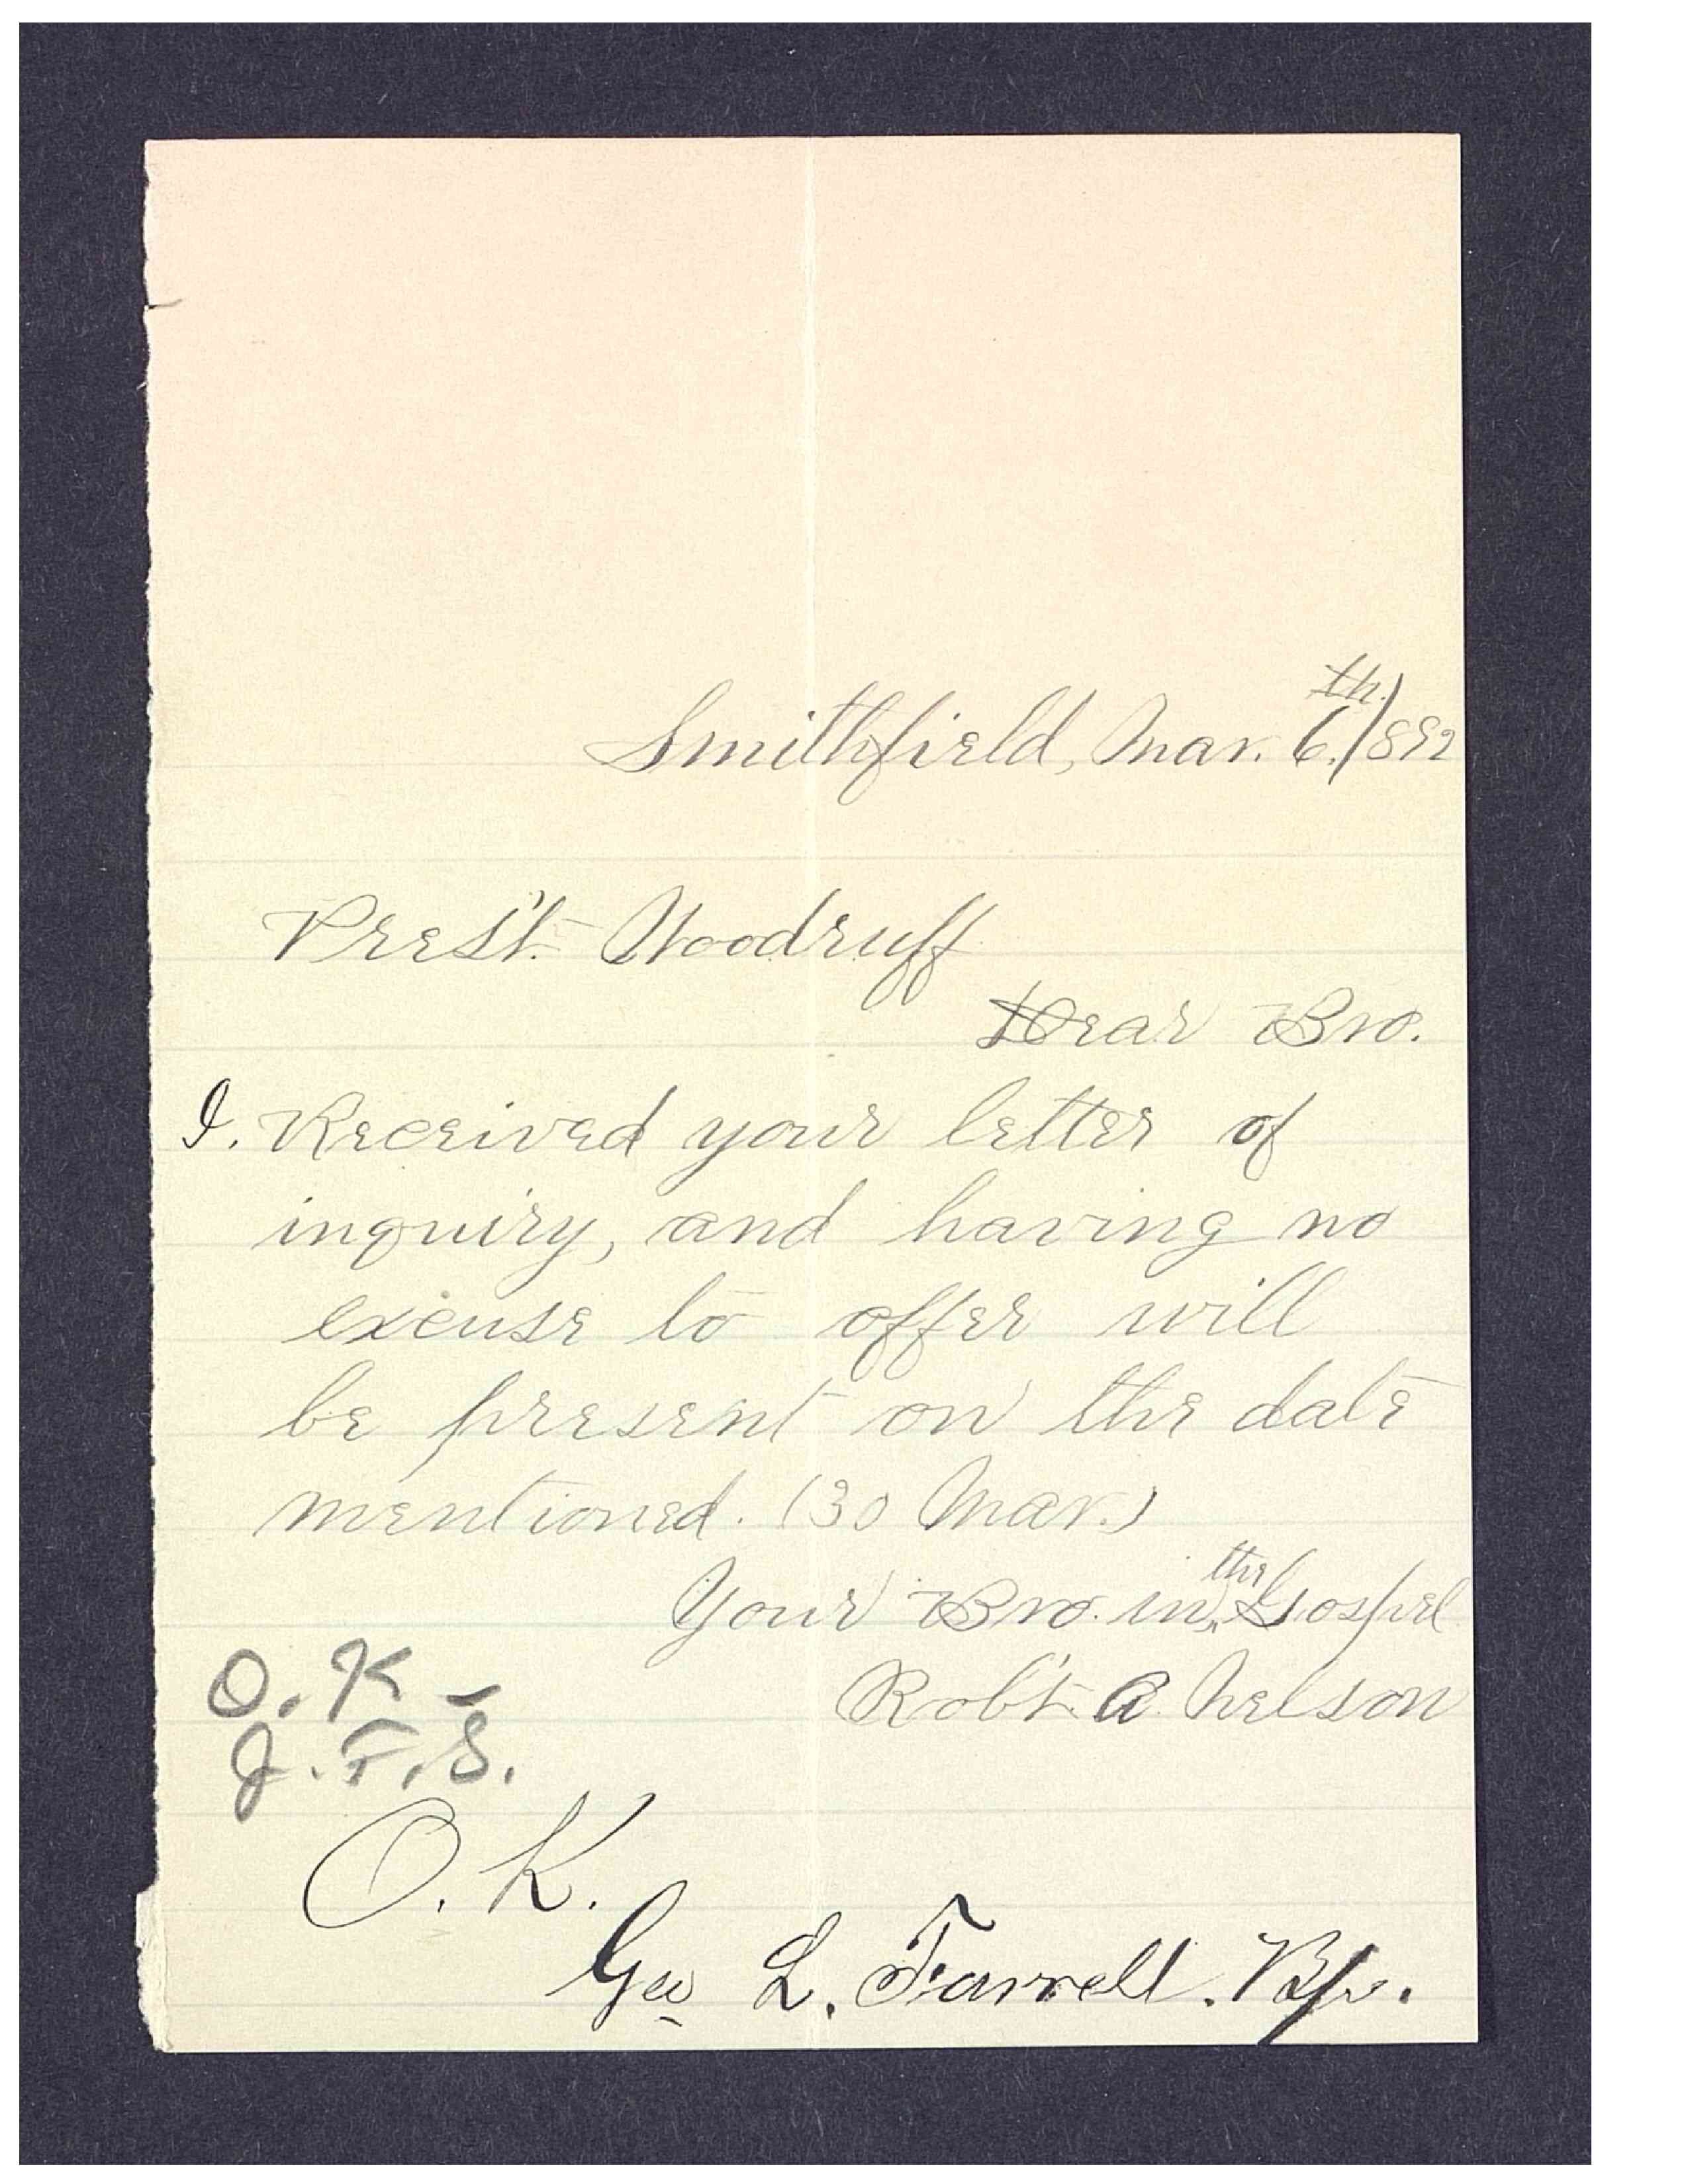 Smithfield, Mar. 6.th /892
Pres't. Woodruff
Dear Bro.
I. Received your letter of
inquiry, and having no
excuse to offer will
be present on the date
mentioned. (30 Mar.)
Your Bro. in the Gospel
Rob't. A. Nelson
O. K –
J. F. S.
O. K.
Geo L. Farrell. Bp.